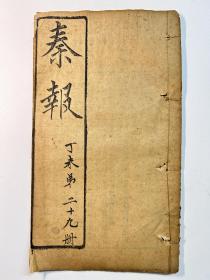 秦報
丁未第二十九册